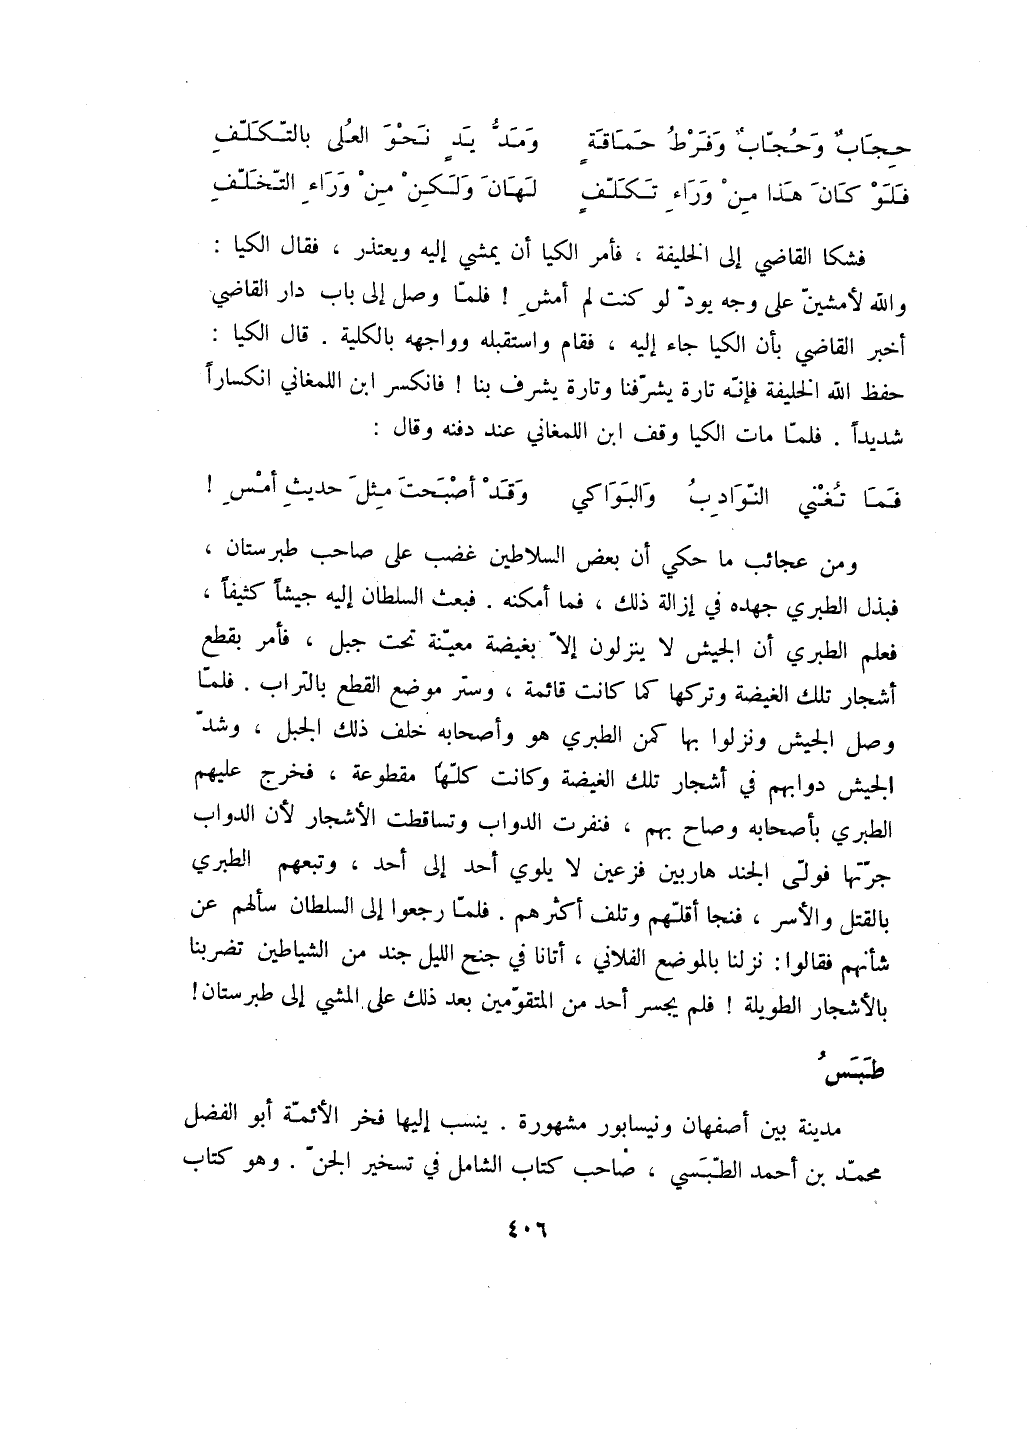 حِجَابٌ وَحُجّابٌ وَفَرْطُ حَمَاقَةٍ وَمَدُّ يَدٍ نَحْوَ العُلى بالتّكَلّفِ
فَلَوْ كَانَ هَذا مِنْ وَرَاءِ تَكَلّفٍ لَهَانَ وَلَكِنْ مِنْ وَرَاءِ التّخَلّفِ
فشكا القاضي إلى الخليفة ، فأمر الكيا أن يمشي إليه ويعتذر ، فقال الكيا :
والله لأمشينّ على وجه يودّ لو كنت لم أمشِ ! فلمّا وصل إلى باب دار القاضي
أخبر القاضي بأن الكيا جاء إليه ، فقام واستقبله وواجهه بالكلية . قال الكيا :
حفظ الله الخليفة فإنّه تارة يشرّفنا وتارة يشرف بنا ! فانكسر ابن اللمغاني انكساراً
شديداً . فلمّا مات الكيا وقف ابن اللمغاني عند دفنه وقال :
فَمَا تُغْني النّوَادِبُ وَالبَوَاكي وَقَدْ أصْبَحتَ مِثلَ حديثِ أمْسِ !
ومن عجائب ما حكي أن بعض السلاطين غضب على صاحب طبرستان ،
فبذل الطبري جهده في إزالة ذلك ، فما أمكنه . فبعث السلطان إليه جيشاً كثيفاً ،
فعلم الطبري أن الجيش لا ينزلون إلاّ بغيضة معيّنة تحت جبل ، فأمر بقطع
أشجار تلك الغيضة وتركها كما كانت قائمة ، وستر موضع القطع بالتراب . فلمّا
وصل الجيش ونزلوا بها كمن الطبري هو وأصحابه خلف ذلك الجبل ، وشدّ
الجيش دوابهم في أشجار تلك الغيضة وكانت كلّها مقطوعة ، فخرج عليهم
الطبري بأصحابه وصاح بهم ، فنفرت الدواب وتساقطت الأشجار لأن الدواب
جرّتها فولّى الجند هاربين فزعين لا يلوي أحد إلى أحد ، وتبعهم الطبري
بالقتل والأسر ، فنجا أقلّهم وتلف أكثرهم . فلمّا رجعوا إلى السلطان سألهم عن
شأنهم فقالوا : نزلنا بالموضع الفلاني ، أتانا في جنح الليل جند من الشياطين تضربنا
بالأشجار الطويلة ! فلم يجسر أحد من المتقوّمين بعد ذلك على المشي إلى طبرستان !
طَبَسُ
مدينة بين أصفهان ونيسابور مشهورة . ينسب إليها فخر الأئمّة أبو الفضل
محمّد بن أحمد الطّبَسي ، صاحب كتاب الشامل في تسخير الجنّ . وهو كتاب
٤٠٦